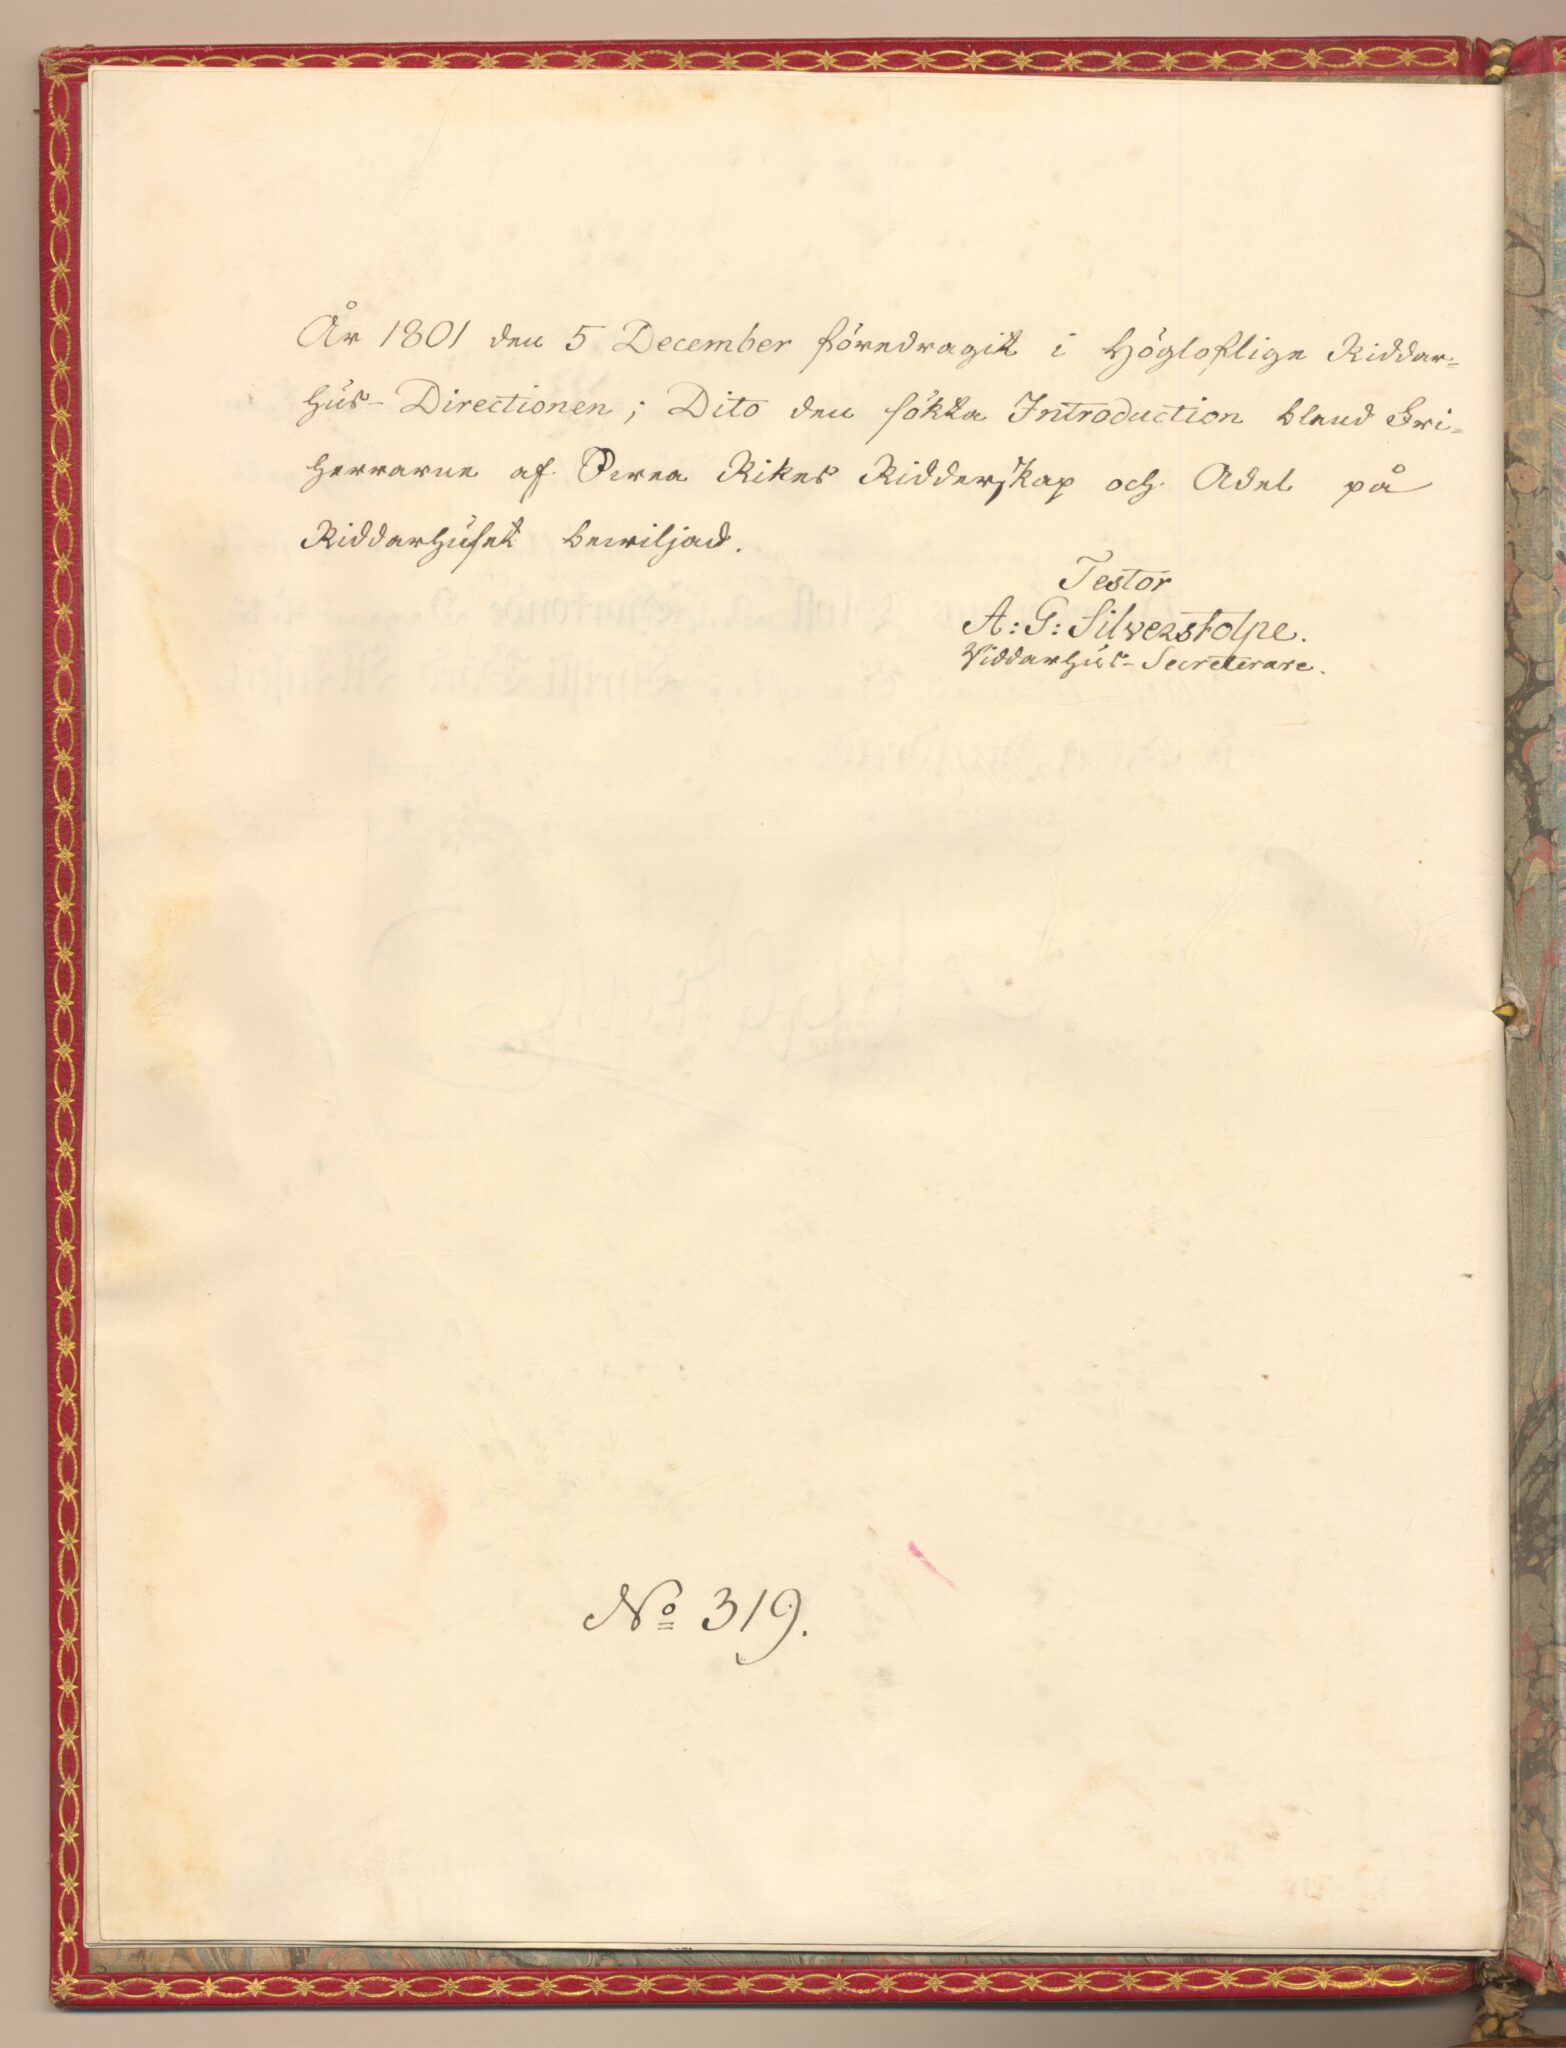 År 1801 den 5 December föredragit i Höglofliga Riddar=
hus-Directionen; Dito den sökta Introduction bland Fri=
herrarne af Swea Rikes Ridderskap och Adel på
Riddarhuset bewiljad.
Testor
A: G: Silverstolpe.
Riddarhus-Secreterare.
No 319.